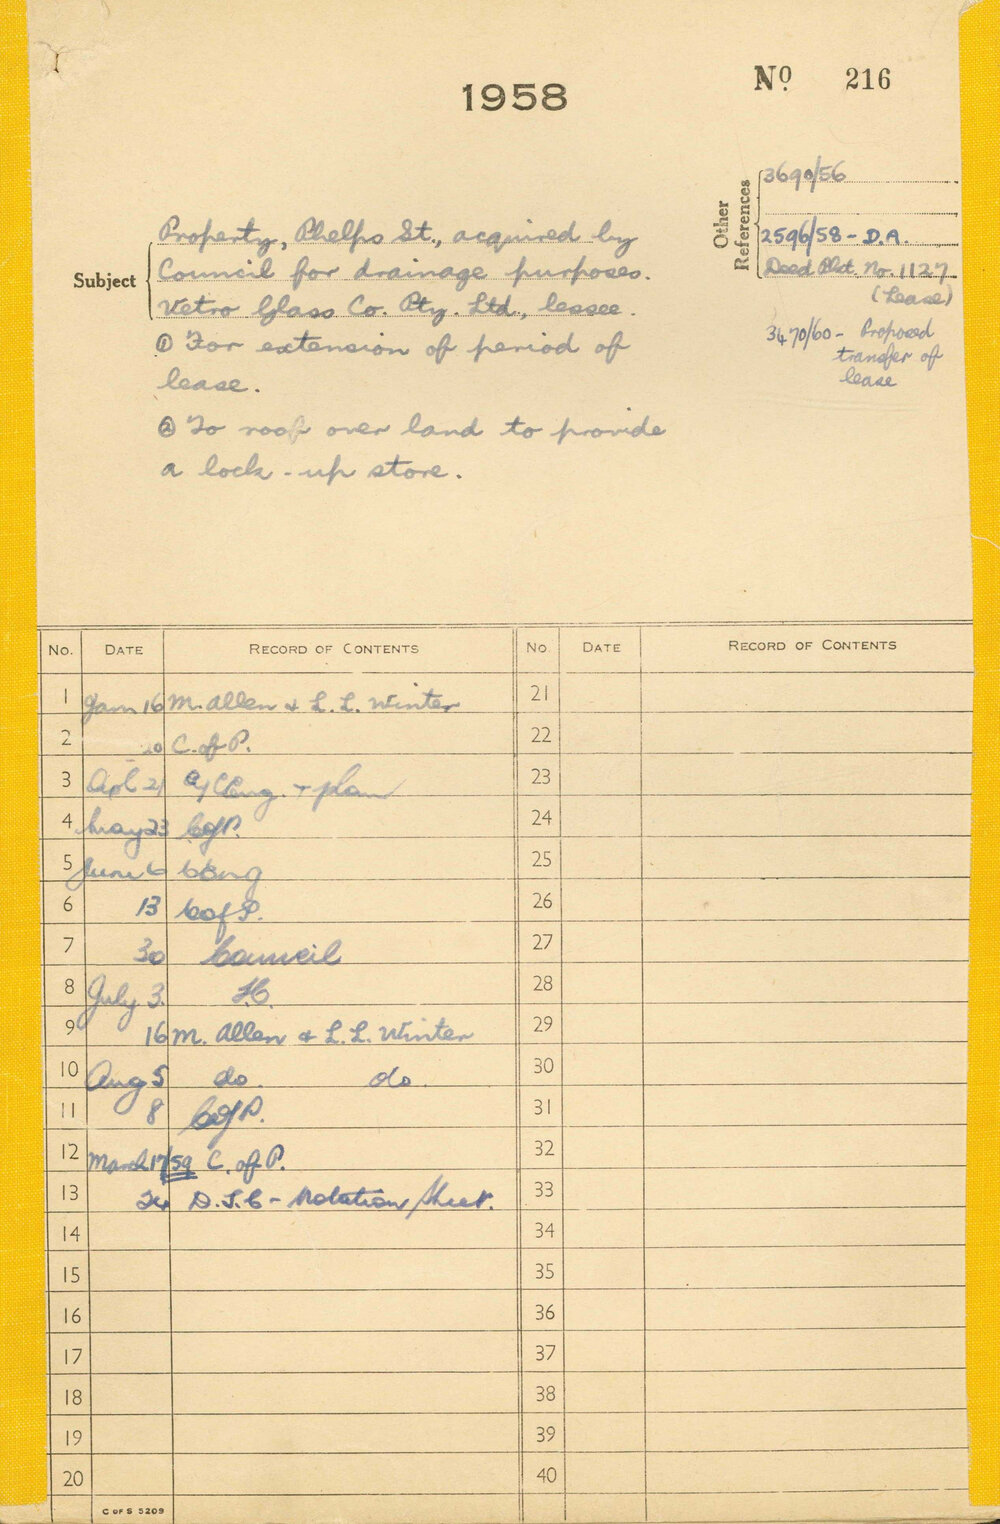 1958
No. 216
Other References
3690/56
2596/58 - D.A.
Deed Pkt. No. 1127
(Lease)
3470/60 - Proposed
transfer of
lease
Subject
Property, Phelps St., acquired by
Council for drainage purposes.
Vetro Glass Co. Pty. Ltd., lessee.
① For extension of period of
lease.
② To roof over land to provide
a lock-up store.
No. DATE RECORD OF CONTENTS No DATE RECORD OF CONTENTS
1 Jan 16 M. Allen & L. L. Winter 21
2 20 C. of P. 22
3 Apl 21 & plan 23
4 May 23 C of P. 24
5 June 6 25
6 13 C of P. 26
7 30 Council 27
8 July 3. 28
9 16 M. Allen & L. L. Winter 29
10 Aug 5 do. do. 30
11 8 C of P. 31
12 March 17/59 C. of P. 32
13 24 - Notation Sheet. 33
14 34
15 35
16 36
17 37
18 38
19 39
20 40
C OF S 5209